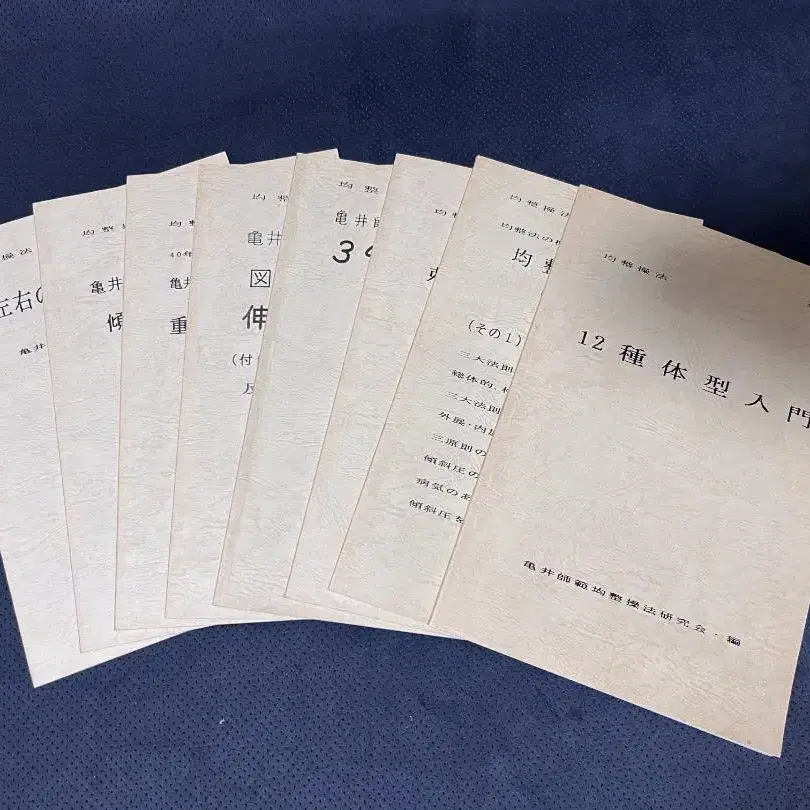 操法
左右の
亀井
均整操
亀井
傾
均整
40年
亀井
重
均整
亀井
図
伸
(付
反
均整
亀井
34
均整
均整操法
均整法の
均整
(その1)
三大法則
総体的、
三大法則
外展・内
三原則の
傾斜圧の
病気のあ
傾斜圧を
均整操法
12種体型入門
亀井師範均整操法研究会・編